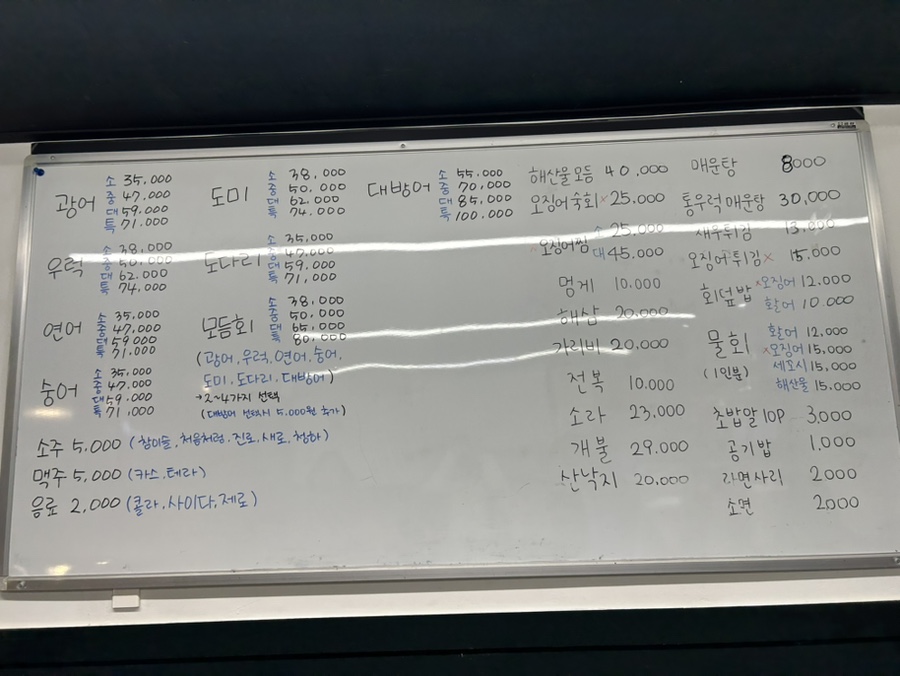 광어
소 35.000
중 47.000
대 59.000
특 71.000
우럭
소 38.000
중 50.000
대 62.000
특 74.000
연어
소 35.000
중 47.000
대 59.000
특 71.000
숭어
소 35.000
중 47.000
대 59.000
특 71.000
도미
소 38.000
중 50.000
대 62.000
특 74.000
도다리
소 35.000
중 47.000
대 59.000
특 71,000
모듬회
소 38.000
중 50.000
대 65.000
특 80.000
(광어, 우럭, 연어, 숭어,
도미, 도다리, 대방어)
→2~4가지 선택
(대방어 선택시 5.000원 추가)
소주 5,000 (참이슬, 처음처럼, 진로, 새로, 청하)
맥주 5,000 (카스, 테라)
음료 2,000 (콜라, 사이다, 제로)
대방어
소 55.000
중 70.000
대 85,000
특 100.000
해산물모듬 40.000
오징어숙회× 25.000
×오징어찜 소 25.000
대 45.000
멍게 10.000
해삼 20.000
가리비 20.000
전복 10.000
소라 23.000
개불 29.000
산낙지 20.000
매운탕 8000
통우럭매운탕 30,000
새우튀김 13,000
오징어튀김× 15.000
회덮밥 ×오징어 12.000
활어 10.000
물회
(1인분)
활어 12,000
×오징어 15,000
세꼬시 15,000
해산물 15.000
초밥알 10P 3,000
공기밥 1,000
라면사리 2000
소면 2000